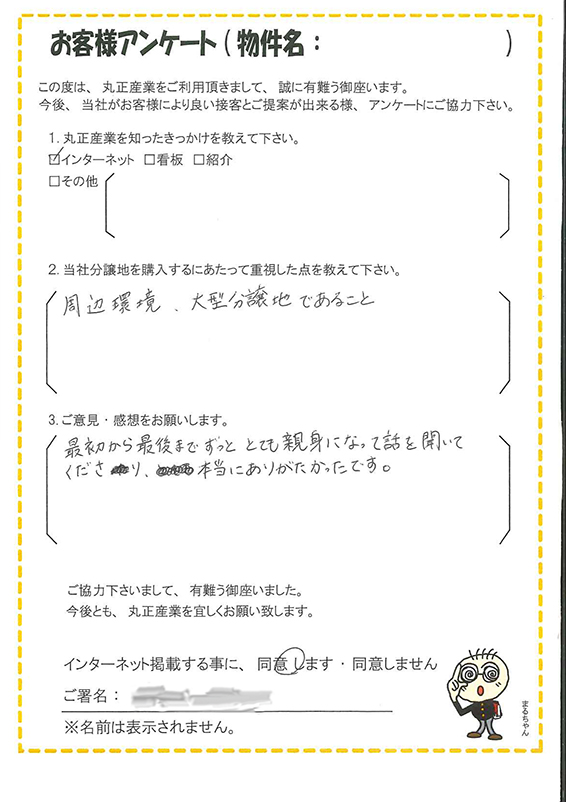 お客様アンケート(物件名: )
この度は、丸正産業をご利用頂きまして、誠に有難う御座います。
今後、当社がお客様により良い接客とご提案が出来る様、アンケートにご協力下さい。
1.丸正産業を知ったきっかけを教えて下さい。
☑インターネット □看板 □紹介
□その他
2.当社分譲地を購入するにあたって重視した点を教えて下さい。
周辺環境、大型分譲地であること
3.ご意見・感想をお願いします。
最初から最後までずっととても親身になって話を聞いて
くださり、本当にありがたかったです。
ご協力下さいまして、有難う御座いました。
今後とも、丸正産業を宜しくお願い致します。
インターネット掲載する事に、同意します・同意しません
ご署名:
※名前は表示されません。
まるちゃん